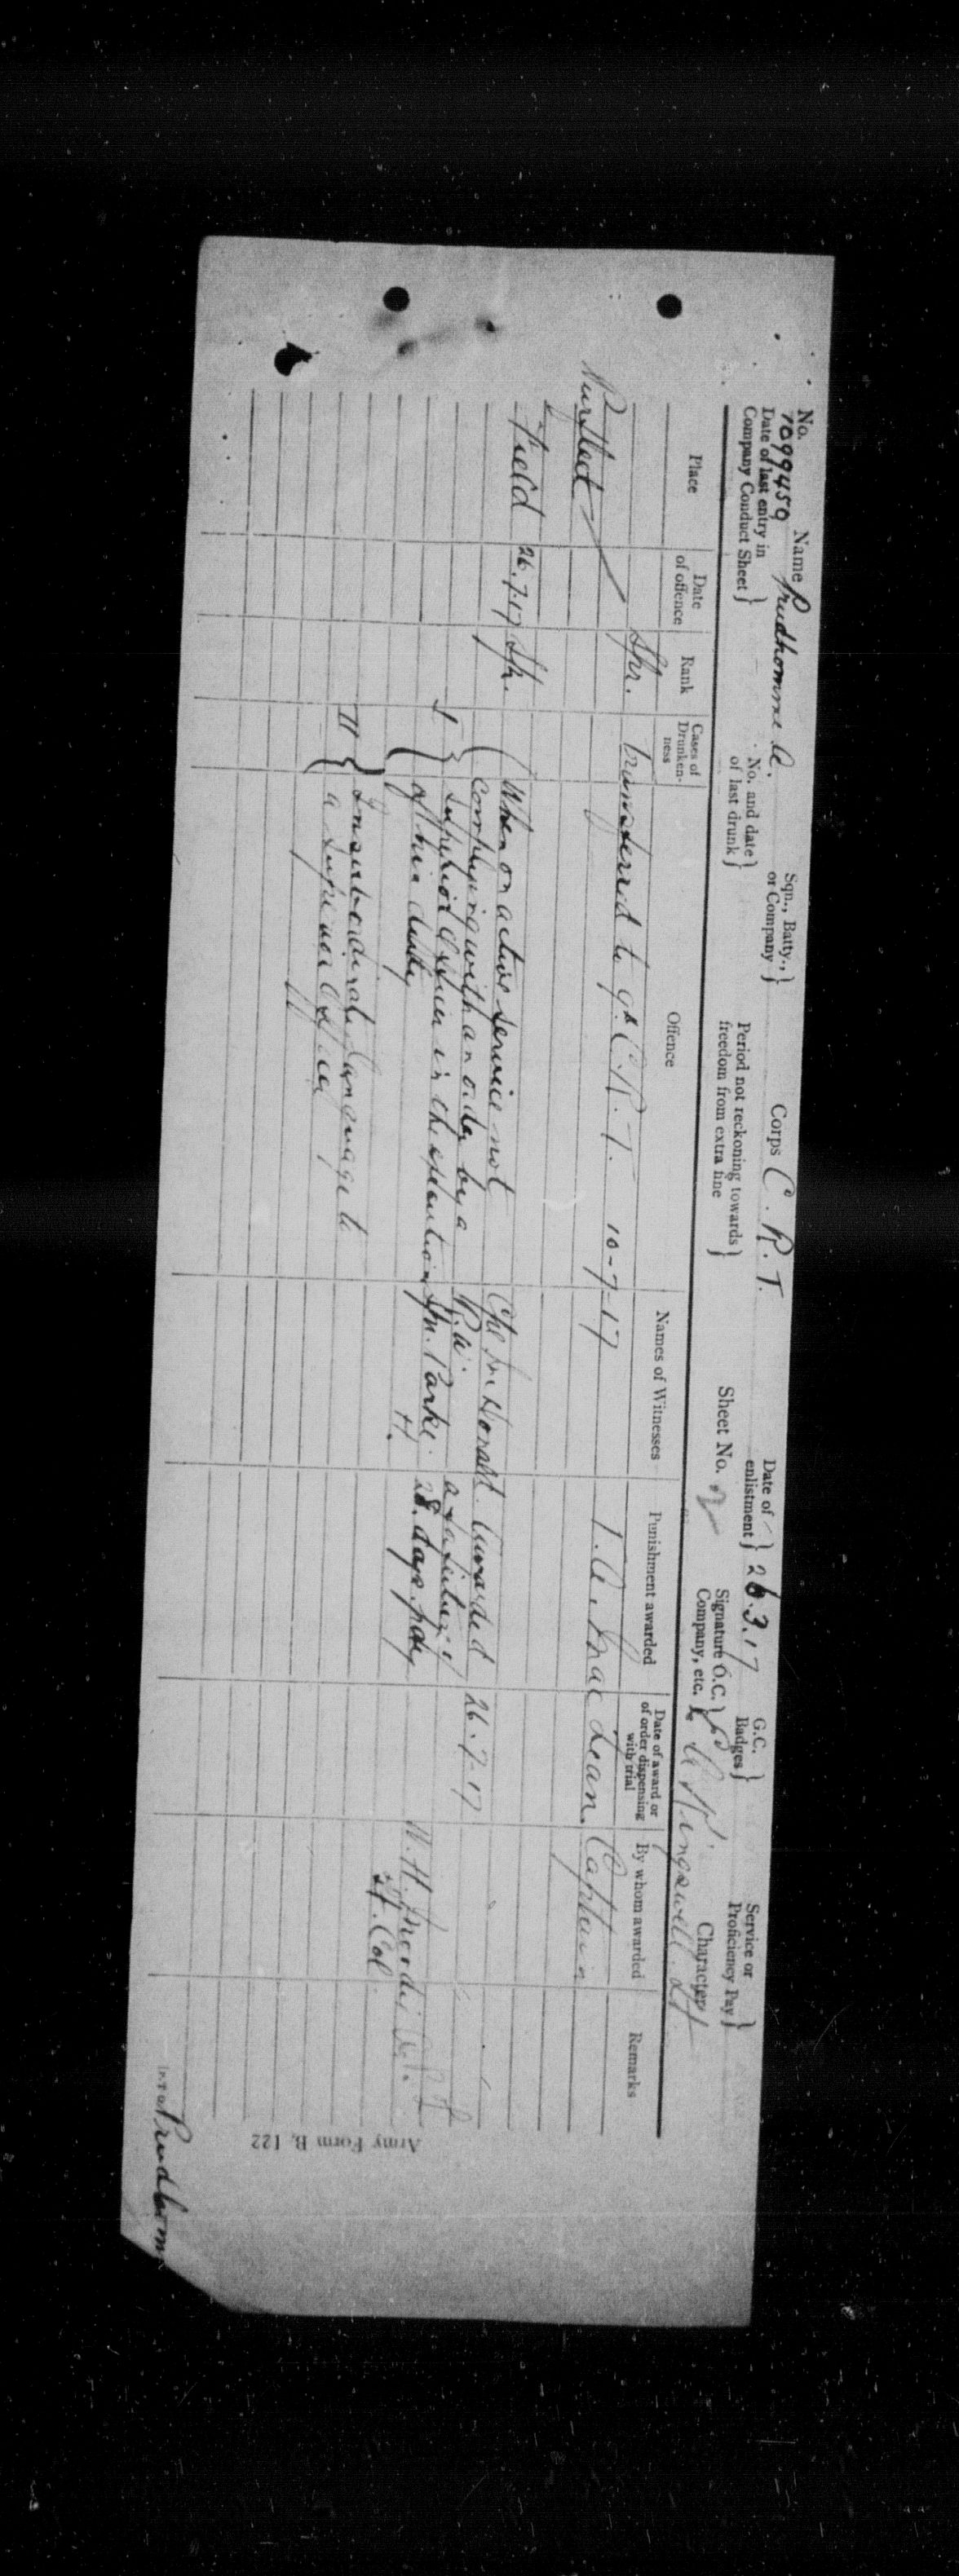 No. 1099459 Name Prudhomme A. Sqn., Batty., or Company } Corps C. R. T. Date of enlistment } 26.3.17 G.C. Badges } Service or Proficiency Pay }
Date of last entry in Company Conduct Sheet } No. and date of last drunk } Period not reckoning towards freedom from extra fine } Sheet No. 2 Signature O.C. Company, etc. } Kingswell Lt Character
Place Date of offence Rank Cases of Drunkenness Offence Names of Witnesses Punishment awarded Date of award or of order dispensing with trial By whom awarded Remarks
Spr. transferred to 9th C. R. T. 10-7-17 Mac Lean. Captain
Purfleet
Field 26.7.17 Spr. When on active service not
complying with an order by a Cpl. McDonald Awarded 26.7.17
I superior officer in the execution R.W. a forfeiture of
of his duty Parke. H. 28. days. pay W. H.
II Insubordinate Language to Lt. Col.
a superior officer
Army Form B. 122